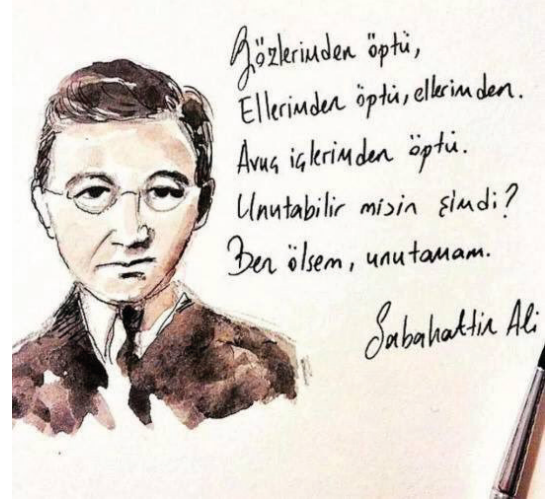 Gözlerimden öptü,
Ellerimden öptü, ellerimden.
Avuç içlerimden öptü.
Unutabilir misin şimdi?
Ben ölsem, unutamam.
Sabahattin Ali